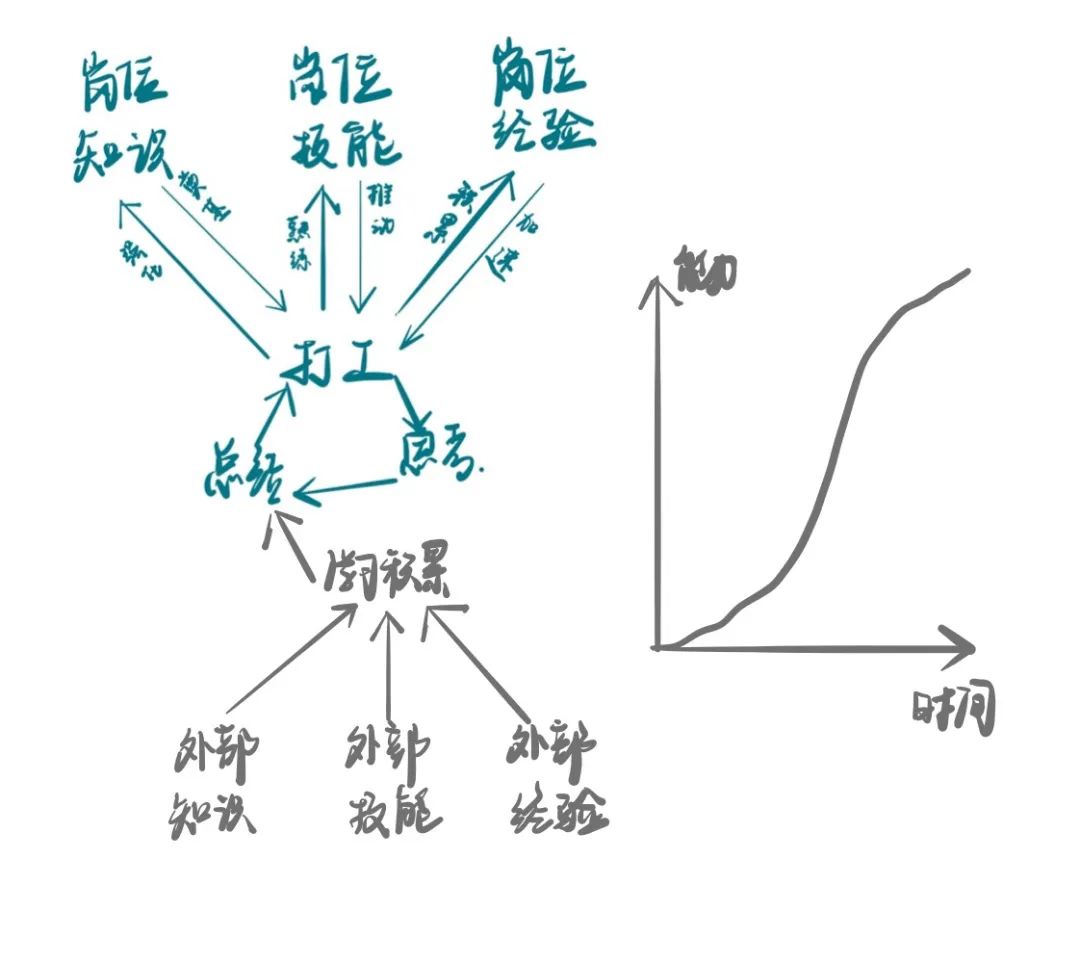 岗位
知识
岗位
技能
岗位
经验
奠基
强化
熟练
推动
积累
加速
打工
总结
思考.
学习积累
外部
知识
外部
技能
外部
经验
能力
时间